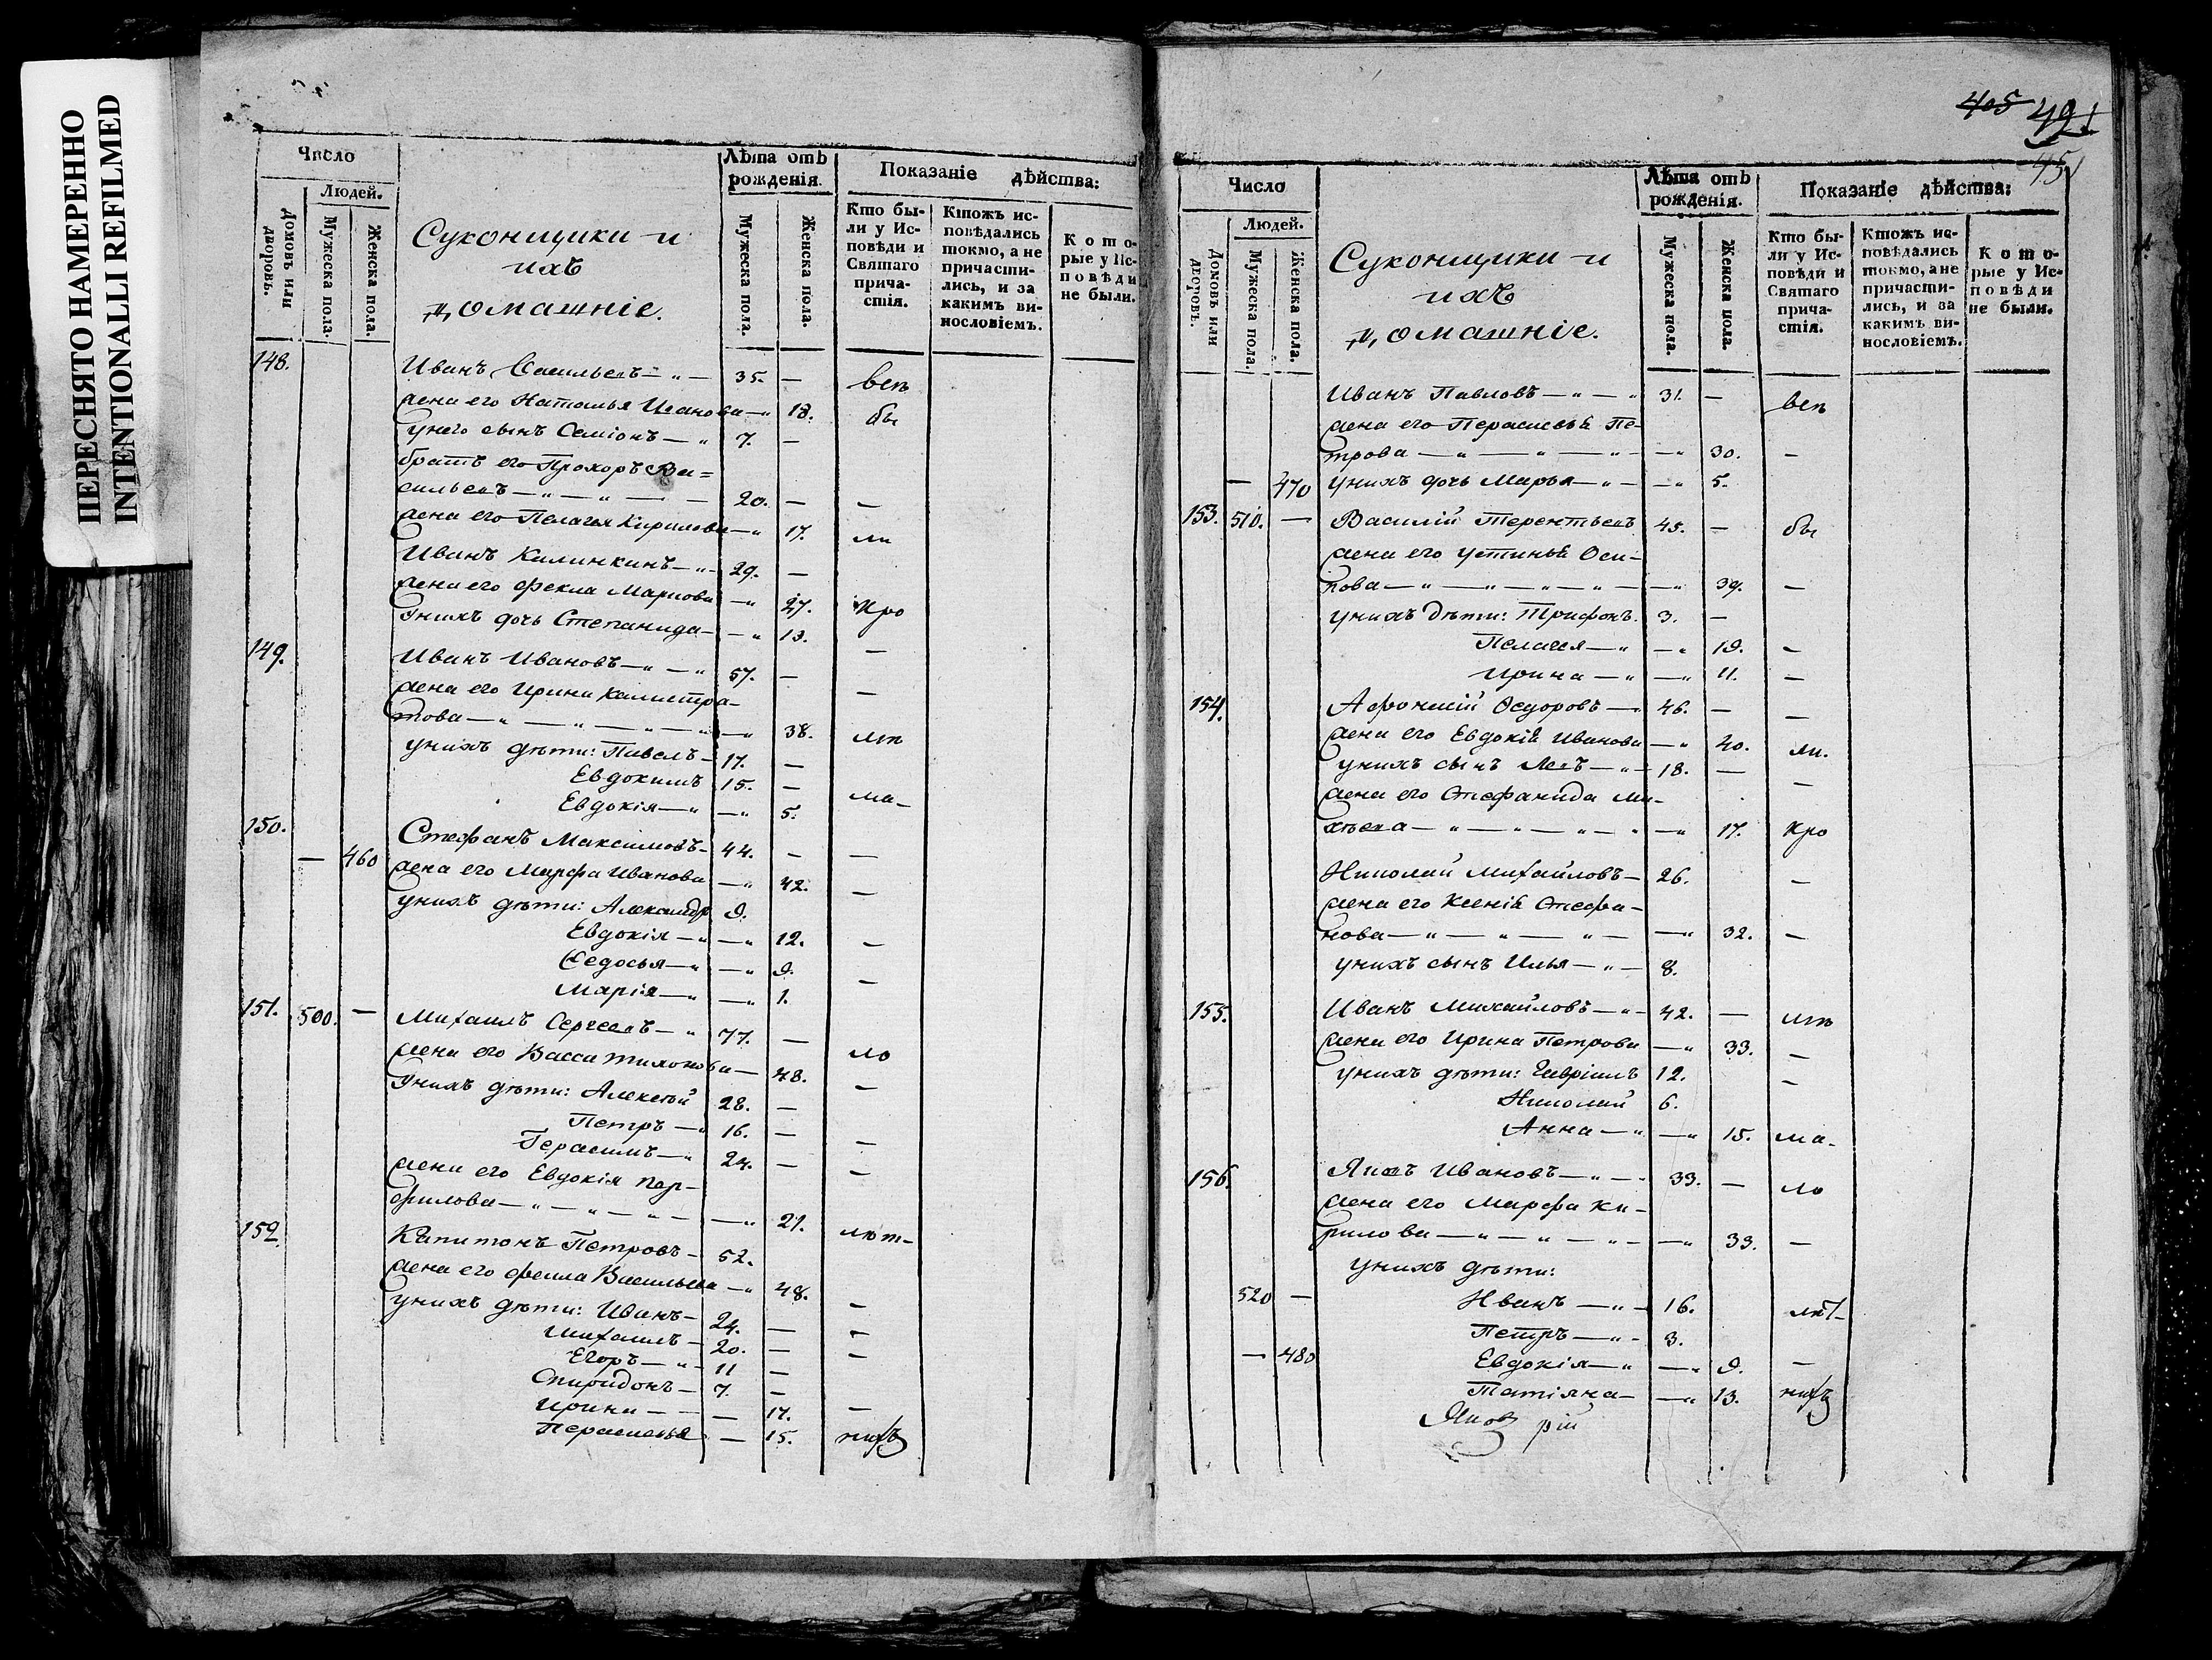 ПЕРЕСНЯТО НАМЕРЕННО
INTENTIONALLI REFILMED
Число
Людей.
Домовъ или дворовъ.
Мужеска пола.
Женска пола.
Суконщики и
ихъ
домашніе.
Лѣта отъ рожденія.
Мужеска пола.
Женска пола.
Показаніе дѣйства:
Кто бы-
ли у Ис-
повѣди и
Святаго
прича-
стія.
Ктожъ ис-
повѣдались
токмо, а не
причасти-
лись, и за
какимъ ви-
нословіемъ.
Кото-
рые у Ис-
повѣди
не были.
148. Иванъ Васильевъ — „ — 35. — всѣ
жена его Наталья Иванова — „ 18. бы
у него сынъ Семіонъ — „ 7. —
братъ его Прохоръ Ва=
сильевъ — „ — „ — „ — 20. — —
жена его Пелагея Кирилова — „ 17. ли
Иванъ Калинкинъ — „ 29. —
жена его Фекла Маркова — „ 27. Кро
у нихъ дочь Степанида — — „ 13. —
149. Иванъ Ивановъ — „ — „ 57. — —
жена его Ирина Калистра-
това — „ — „ — „ — „ — „ 38. лѣ
у нихъ дѣти: Павелъ — 17. —
Евдокимъ 15. — ма-
Евдокія — „ — „ 5.
150. Стефанъ Максимовъ — 44. — —
— 460 жена его Марфа Иванова — „ 42. —
у нихъ дѣти: Александръ 9.
Евдокія — „ — „ 12. —
Ѳедосья — „ — „ 9. —
Марія — „ — „ 1.
151. 500. — Михаилъ Сергеевъ — „ 77. — ло
жена его Васса Тихонова — 48. —
у нихъ дѣти: Алексѣй 28. —
Петръ — „ 16. — —
Герасимъ — „ 24. — —
жена его Евдокія Пер-
филова — „ — „ — „ — — „ 21. лѣт-
152. Капитонъ Петровъ — 52.
жена его Фекла Васильева — „ 48. —
у нихъ дѣти: Иванъ — 24. — —
Михаилъ — 20. — —
Егоръ — „ — 11 —
Спиридонъ — 7. —
Ирина — — — 17. —
Парасковья — 15. нихъ
405 491
451
Число
Людей.
Домовъ или дворовъ.
Мужеска пола.
Женска пола.
Суконщики и
ихъ
домашніе.
Лѣта отъ рожденія.
Мужеска пола.
Женска пола.
Показаніе дѣйства:
Кто бы-
ли у Ис-
повѣди и
Святаго
прича-
стія.
Ктожъ ис-
повѣдались
токмо, а не
причасти-
лись, и за
какимъ ви-
нословіемъ.
Кото-
рые у Ис-
повѣди
не были.
Иванъ Павловъ — „ — „ 31. — всѣ
жена его Парасковья Пе-
трова — „ — „ — „ — „ 30. —
— 470 у нихъ дочь Марья — „ — — „ 5.
153. 510. — Василій Терентьевъ 45. — бы
жена его Устинья Оси-
пова — „ — „ — „ — — „ 39. —
у нихъ дѣти: Трифонъ. 3. —
Пелагея — „ — „ 19. —
Ирина — „ — „ 11. —
154. Афонасій Ѳедоровъ — 46. — —
жена его Евдокія Иванова — „ 40. ли.
у нихъ сынъ Левъ — „ — 18. — —
жена его Стефанида Ми-
хѣева — „ — „ — „ — „ — „ 17. Кро
Николай Михайловъ — 26. —
жена его Ксенія Стефа-
нова — „ — „ — „ — — „ 32. —
у нихъ сынъ Илья — „ — 8.
155. Иванъ Михайловъ — „ — 42. — лѣ
жена его Ирина Петрова — „ 33. —
у нихъ дѣти: Гавріилъ 12. —
Николай 6.
Анна — „ — „ 15. ма-
156. Яковъ Ивановъ — „ — 33. — ло
жена его Марфа Ки-
рилова — „ — „ — „ — — „ 33. —
у нихъ дѣти:
520 — Иванъ — „ — 16. лѣт-
Петръ — „ — 3.
— 480 Евдокія — „ — „ 9. —
Татіяна — — „ 13. нихъ
рій